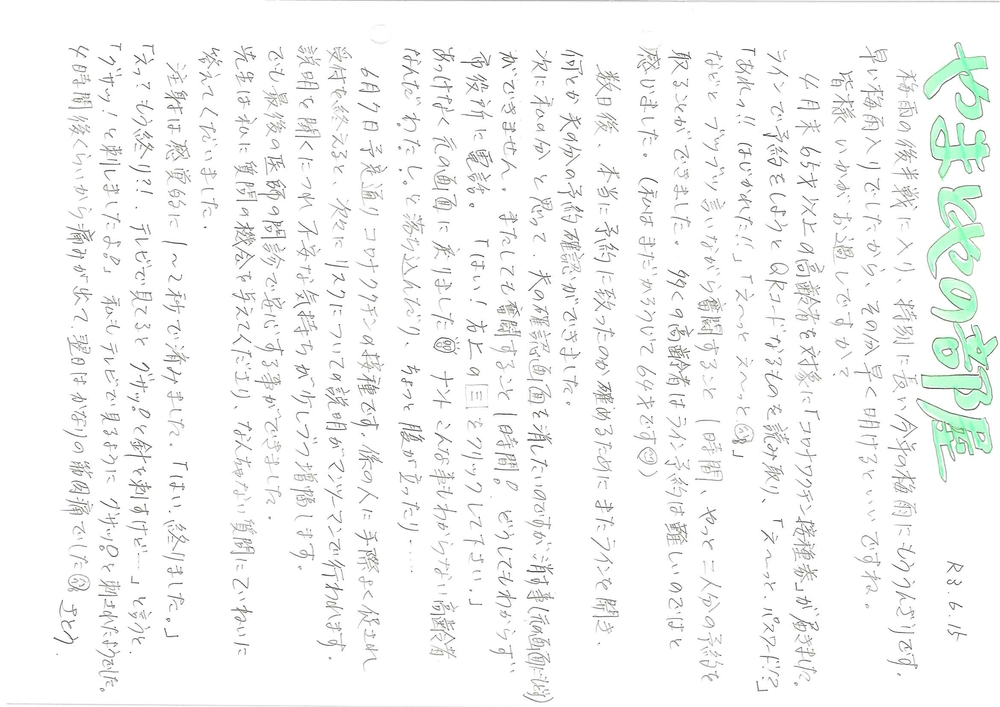 やまどりの部屋
R3.6.15
梅雨の後半戦に入り、特別に長い今年の梅雨にもううんざりです。
早い梅雨入りでしたから、その分早く明けるといいですね。
皆様いかがお過しですか?
4月末65才以上の高齢者を対象に「コロナワクチン接種券」が届きました。
ラインで予約をしようとQRコードなるものを読み取り、「え〜っと、パスワード!?」
「あれっ!!はじかれた!!」「え〜っとえ〜っと」
などとブツブツ言いながら奮闘すること1時間、やっと二人分の予約を
取ることができました。多くの高齢者はライン予約は難しいのではと
思いました。(私はまだかろうじて64才です)
数日後、本当に予約に致ったのか確めるためにまたラインを開き、
何とか夫の分の予約確認ができました。
次に私の分と思って、夫の確認画面を消したいのですが消す事(元の画面に戻す)
ができません。またしても奮闘すること1時間。どうしてもわからず
市役所に電話。「はい!右上の三をクリックして下さい。」
あっけなく元の画面に戻りました ナントこんな事もわからない高齢者
なんだわ?し。と落ち込んだり、ちょっと腹が立ったり…
6月9日予定通りコロナワクチンの接種です。係の人に手際よく促され
受付を終えると、次にリスクについての説明がマンツーマンで行われます。
説明を聞くにつれ不安な気持ちが少しづつ増幅します。
でも最後の医師の問診で安心する事ができました。
先生は私に質問の機会を与えてくださり、なんでもない質問にていねいに
答えてくださいました。
注射は感覚的に1〜2秒で済みました。「はい、終りました。」
「えってもう終り?!テレビで見てるとグサッ!と針を刺すけど…」と言うと、
「グサッ!と刺しましたよ?」私もテレビで見るようにグサッ!と刺されたようでした。
4時間後くらいから痛みが出て、翌日はかなりの筋肉痛でした さとう